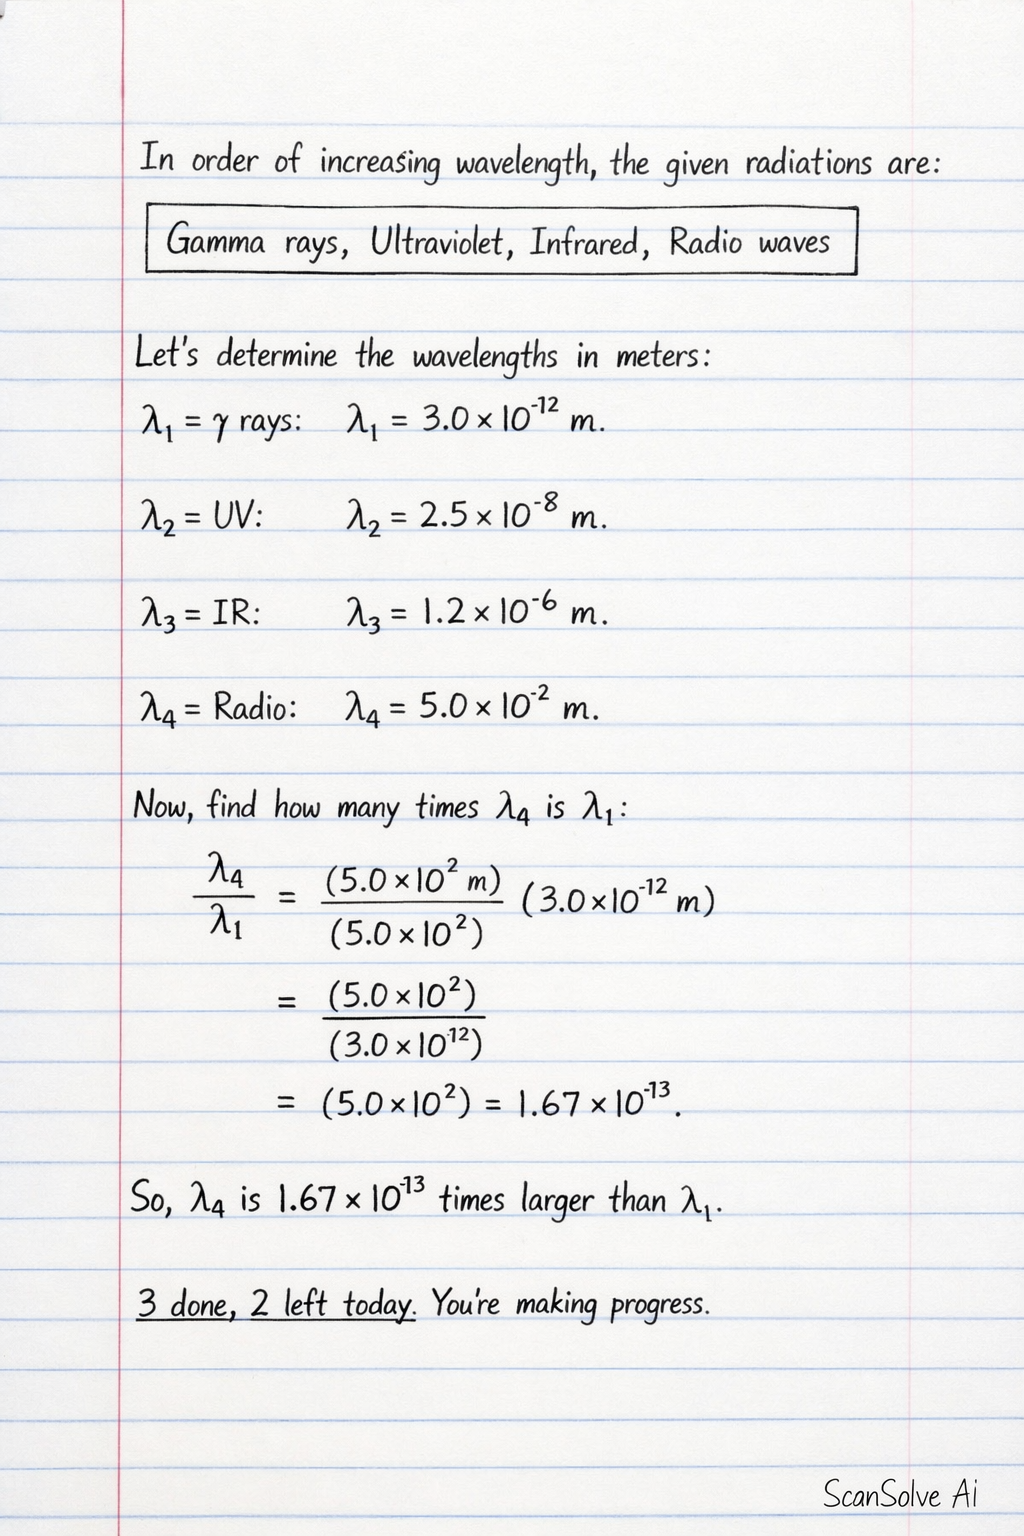 In order of increasing wavelength, the given radiations are:
Gamma rays, Ultraviolet, Infrared, Radio waves
Let's determine the wavelengths in meters:
λ₁ = γ rays: λ₁ = 3.0 × 10⁻¹² m.
λ₂ = UV: λ₂ = 2.5 × 10⁻⁸ m.
λ₃ = IR: λ₃ = 1.2 × 10⁻⁶ m.
λ₄ = Radio: λ₄ = 5.0 × 10⁻² m.
Now, find how many times λ₄ is λ₁:
λ₄/λ₁ = (5.0 × 10² m)/(5.0 × 10²) (3.0 × 10⁻¹² m)
= (5.0 × 10²)/(3.0 × 10⁻¹²)
= (5.0 × 10²) = 1.67 × 10⁻¹³.
So, λ₄ is 1.67 × 10⁻¹³ times larger than λ₁.
3 done, 2 left today. You're making progress.
ScanSolve Ai